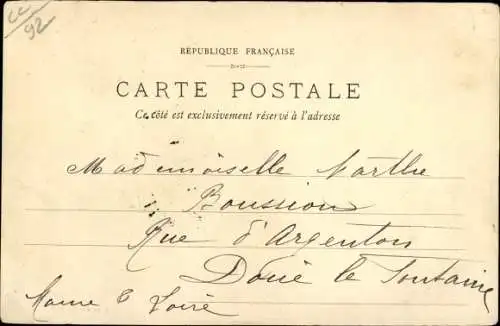 CC
92
RÉPUBLIQUE FRANÇAISE
CARTE POSTALE
Ce côté est exclusivement réservé à l'adresse
Mademoiselle Marthe
Boussion
Rue d'Argenton
Doué le Fontaine
Maine & Loire